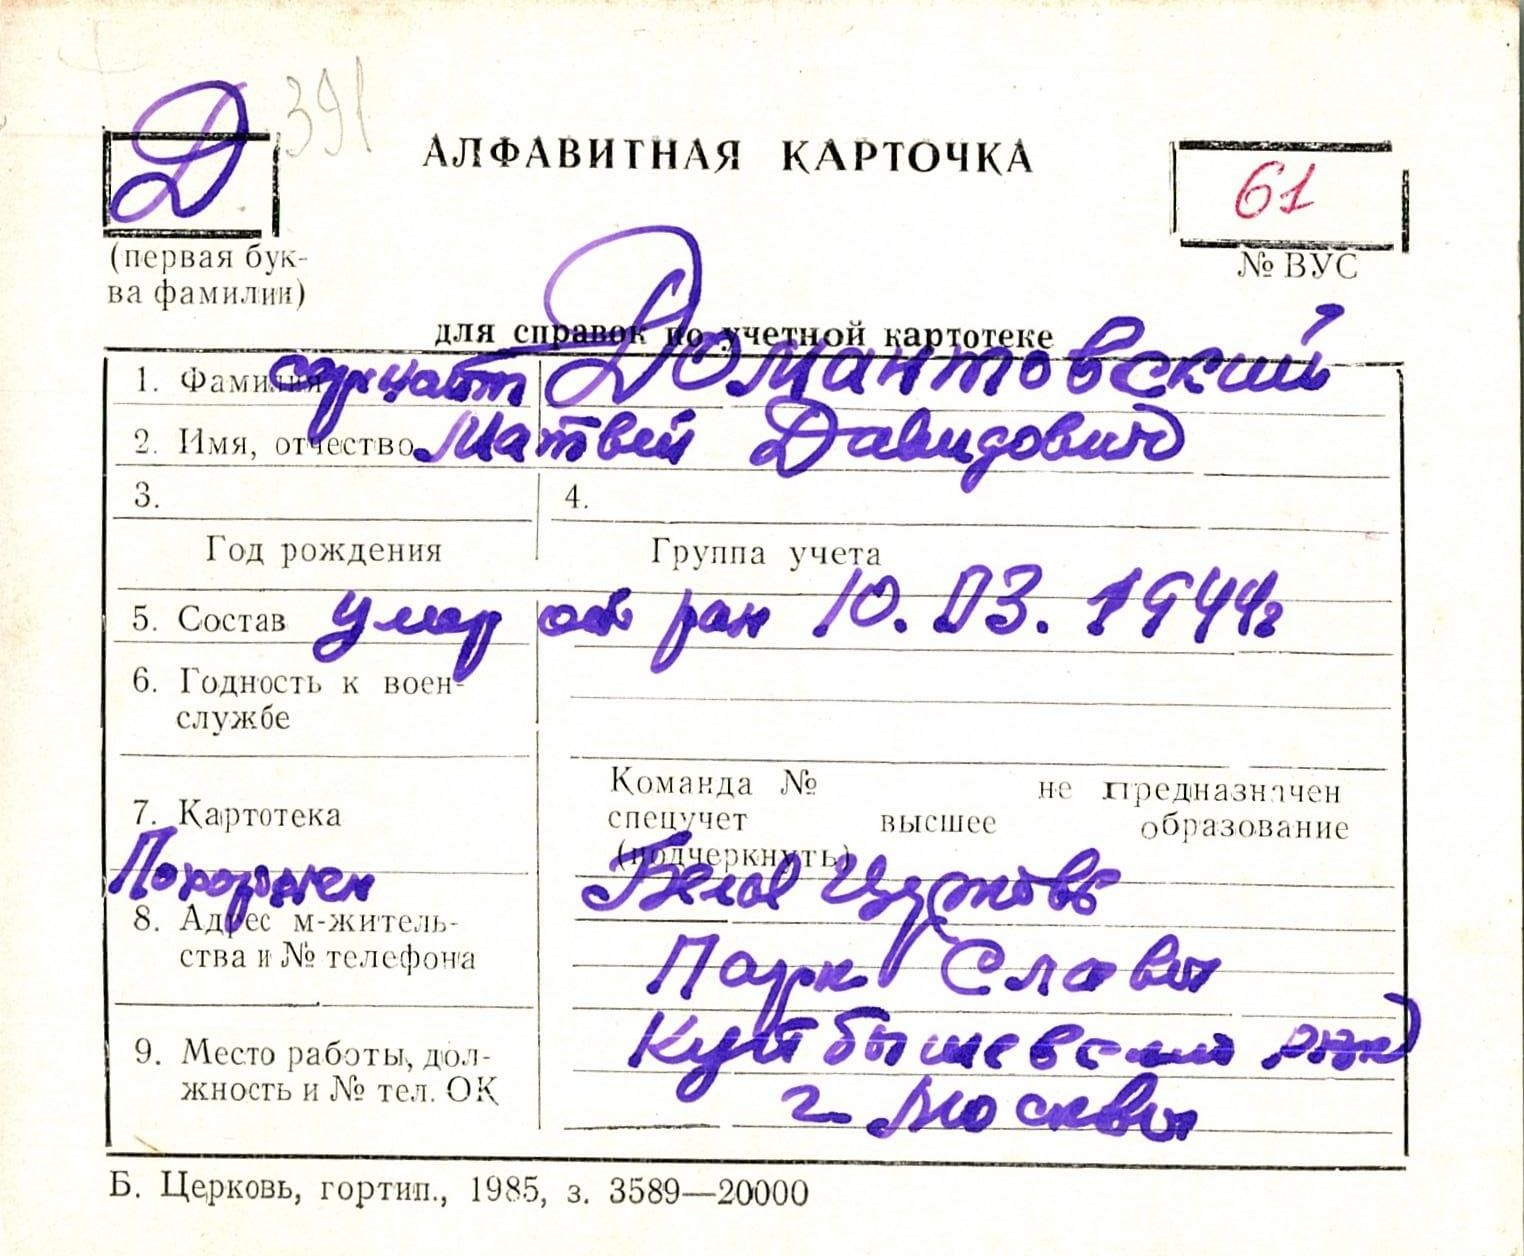 Д 391
АЛФАВИТНАЯ КАРТОЧКА
61
(первая бук-
ва фамилии)
№ ВУС
для справок по учетной картотеке
1. Фамилия сержант Домантовский
2. Имя, отчество Матвей Давидович
3. 4.
Год рождения Группа учета
5. Состав умер от ран 10.03.1944г
6. Годность к воен-
службе
Команда № не предназначен
7. Картотека
спецучет высшее образование
(подчеркнуть)
Похоронен Белая Церковь
8. Адрес м-житель-
ства и № телефона
Парк Славы
Куйбышевский рвк
9. Место работы, дол-
жность и № тел. ОК
г. Москвы
Б. Церковь, гортип., 1985, з. 3589—20000